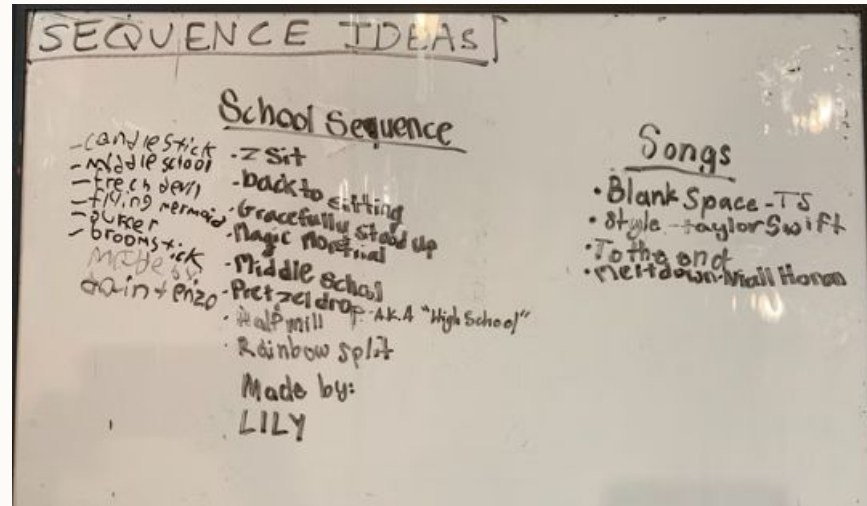 SEQUENCE IDEAS
-candlestick
-Middle school
-french devil
-flying mermaid
-brooms+ick
Made by
School Sequence
·Z Sit
·back to sitting
·Gracefully stood up
·Magic
·Middle School
·Pretzel drop A.K.A "High School"
·Half mill
·Rainbow split
Made by:
LILY
Songs
·Blank Space-TS
·Style-taylor Swift
·To the end
·meltdown-Niall Horan